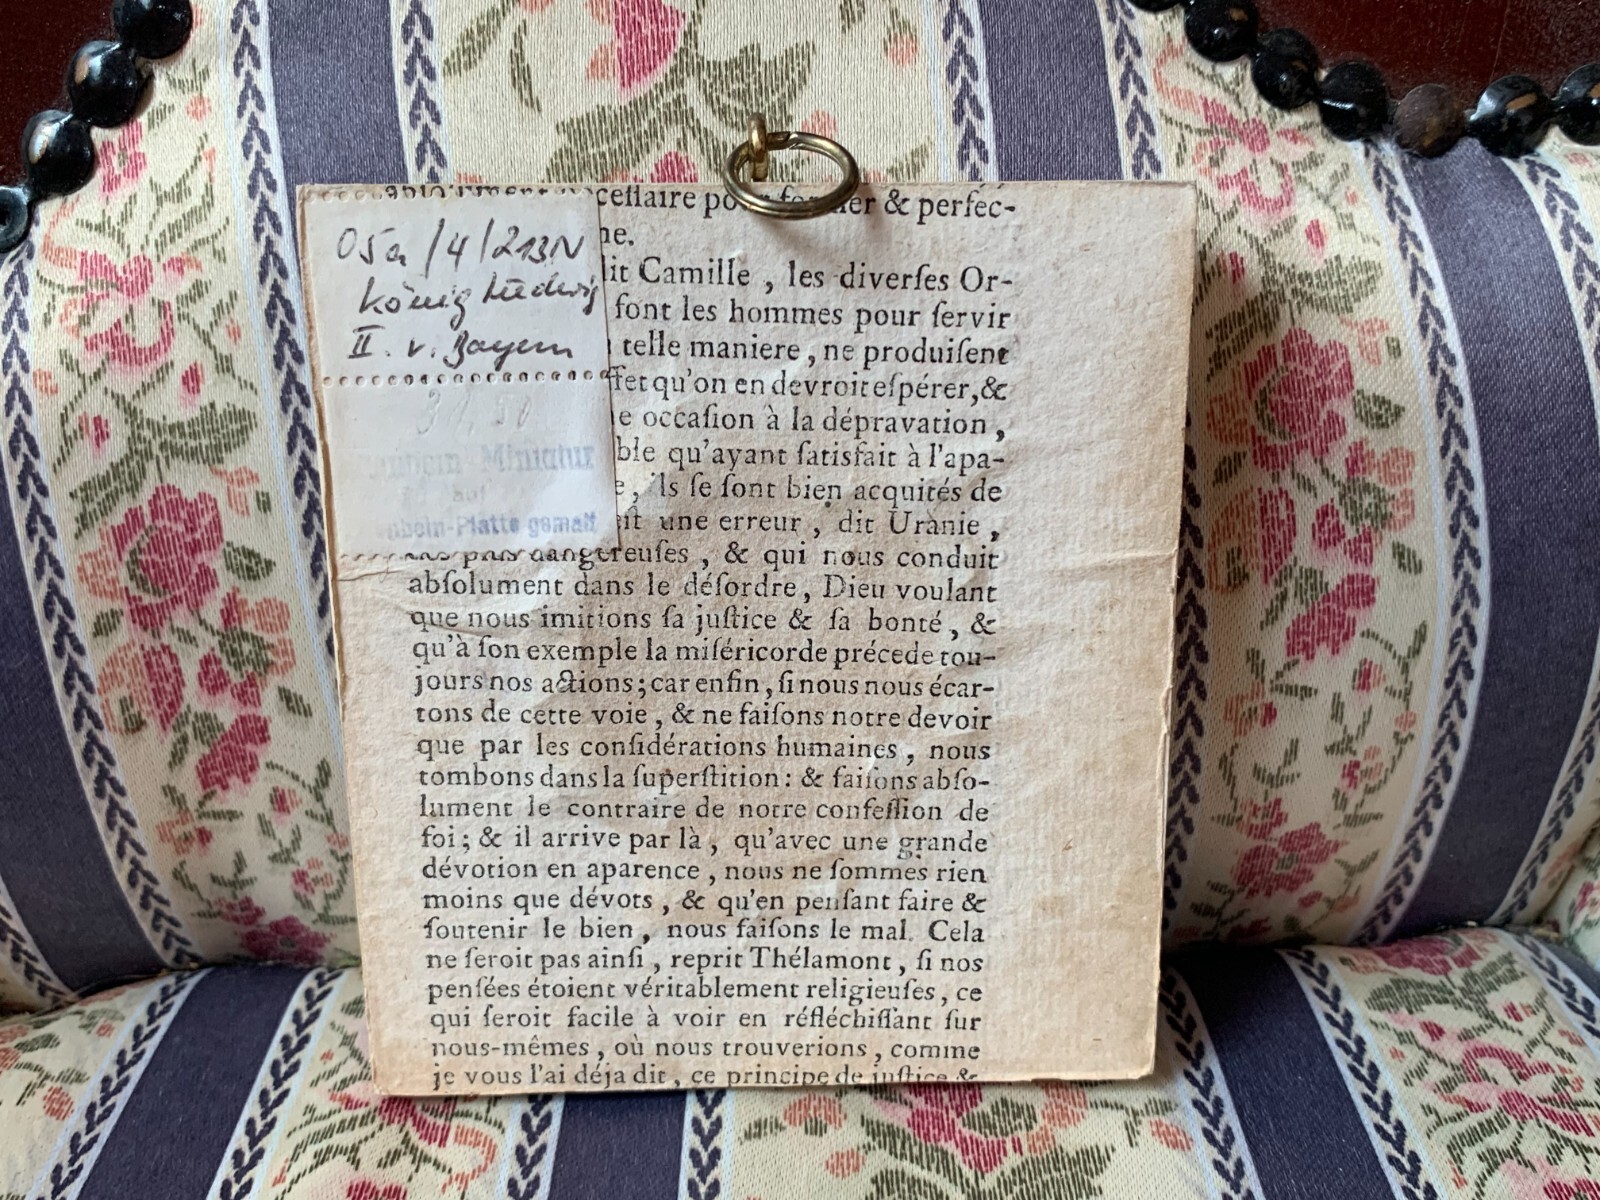 05a/4/213N
König Ludwig
II. v. Bayern
Miniatur
auf
gemalt
cessaire pour former & perfec-
ne.
dit Camille, les diverſes Or-
font les hommes pour ſervir
telle maniere, ne produiſent
ffet qu'on en devroit eſpérer, &
ne occaſion à la dépravation,
ble qu'ayant ſatisfait à l'apa-
e, ils ſe ſont bien acquités de
une erreur, dit Uranie,
plus dangereuſes, & qui nous conduit
abſolument dans le déſordre, Dieu voulant
que nous imitions ſa juſtice & ſa bonté, &
qu'à ſon exemple la miſéricorde précede tou-
jours nos actions; car enfin, ſi nous nous écar-
tons de cette voie, & ne faiſons notre devoir
que par les conſidérations humaines, nous
tombons dans la ſuperſtition: & faiſons abſo-
lument le contraire de notre confeſſion de
foi; & il arrive par là, qu'avec une grande
dévotion en aparence, nous ne ſommes rien
moins que dévots, & qu'en penſant faire &
ſoutenir le bien, nous faiſons le mal. Cela
ne ſeroit pas ainſi, reprit Thélamont, ſi nos
penſées étoient véritablement religieuſes, ce
qui ſeroit facile à voir en réfléchiſſant ſur
nous-mêmes, où nous trouverions, comme
je vous l'ai déja dit, ce principe de juſtice &